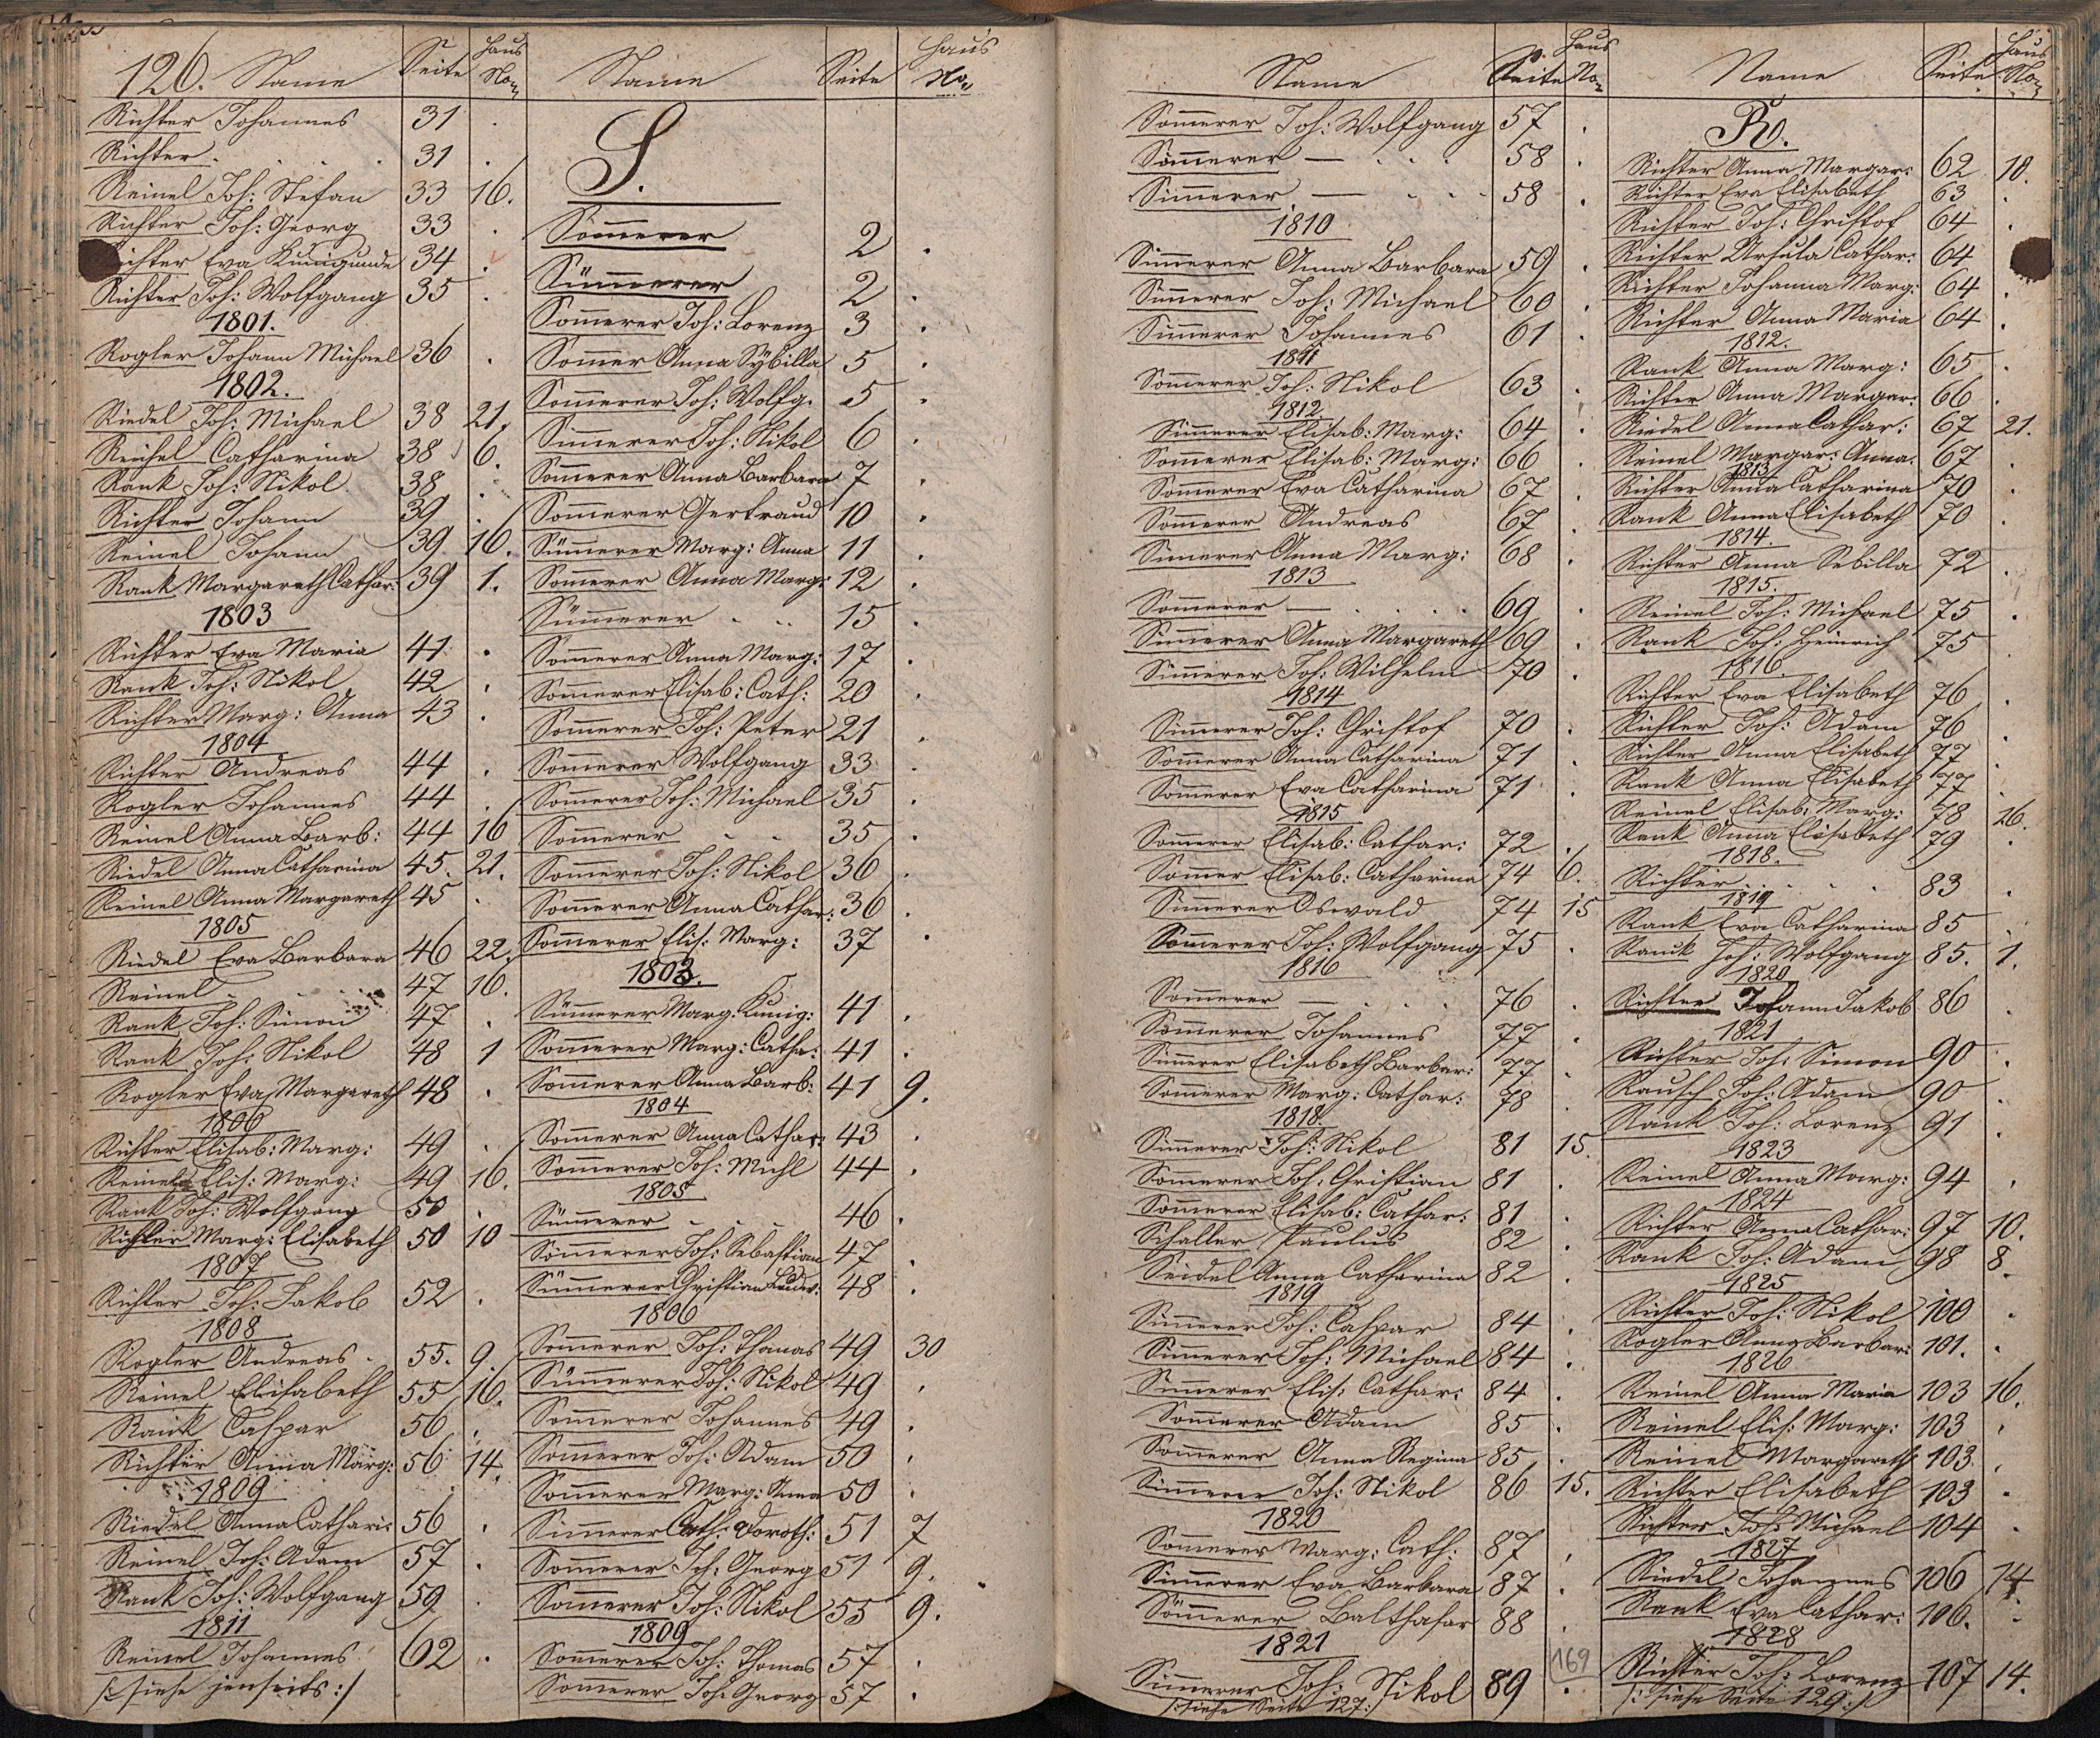 126. Name Seite Haus No
Richter Johannes 31 .
Richter . . . . 31 .
Reinel Joh: Stefan 33 16.
Richter Joh: Georg 33 .
Richter Eva Kunigunde 34 .
Richter Joh: Wolfgang 35 .
1801.
Rogler Johann Michael 36 .
1802.
Riedel Joh: Michael 38 21.
Reichel Catharina 38 6.
Rank Joh: Nikol 38 .
Richter Johann 39 .
Reinel Johann 39 16.
Rank Margareth Cathar: 39 1.
1803
Richter Eva Maria 41 .
Rank Joh: Nikol 42 .
Richter Marg: Anna 43 .
1804
Richter Andreas 44 .
Rogler Johannes 44 .
Reinel Anna Barb: 44 16
Riedel Anna Catharina 45. 21.
Reinel Anna Margareth 45 .
1805
Riedel Eva Barbara 46 22.
Reinel . . 47 16.
Rank Joh: Simon 47 .
Rank Joh: Nikol 48 1
Rogler Eva Margareth 48 .
1806
Richter Elisab: Marg: 49 .
Reinel Elis: Marg: 49 16.
Rank Joh: Wolfgang 50 .
Richter Marg: Elisabeth 50 10
1807
Richter Joh: Jakob 52 .
1808
Rogler Andreas . 55. 9.
Reinel Elisabeth 55 16.
Rank Caspar 56 .
Richter Anna Marg: 56 14.
1809
Riedel Anna Cathari: 56 .
Reinel Joh: Adam 57 .
Rank Joh: Wolfgang 59 .
1811
Reinel Johannes 62 .
/: siehe jenseits :/
Name Seite Haus No
S.
Sommerer 2 .
Simmerer 2 .
Sommerer Joh: Lorenz 3 .
Sommer Anna Sybilla 5 .
Sommerer Joh: Wolfg. 5 .
Simmerer Joh: Nikol 6 .
Sommerer Anna Barbara 7 .
Sommerer Gertraud 10 .
Simmerer Marg: Anna 11 .
Sommerer Anna Marg: 12 .
Simmerer . . . 15 .
Sommerer Anna Marg: 17 .
Sommerer Elisab: Cath: 20 .
Sommerer Joh: Peter 21 .
Sommerer Wolfgang 33 .
Sommerer Joh: Michael 35 .
Sommerer . . 35 .
Sommerer Joh: Nikol 36 .
Sommerer Anna Cathar: 36 .
Sommerer Elis: Marg: 37 .
1803.
Simmerer Marg. Kunig: 41 .
Sommerer Marg: Catha: 41 .
Sommerer Anna Barb: 41 9.
1804
Sommerer Anna Cathar: 43 .
Sommerer Joh: Michl 44 .
1805
Simmerer . . 46 .
Sommerer Joh: Sebastian 47 .
Simmerer Christian 48 .
1806
Sommerer Joh: Thomas 49 30
Simmerer Joh: Nikol 49 .
Sommerer Johannes 49 .
Sommerer Joh: Adam 50 .
Sommerer Marg: Anna 50 .
Simmerer Cath: Doroth: 51 7
Sommerer Joh: Georg 51 9.
Sommerer Joh: Nikol 55 9.
1809
Sommerer Joh: Thomas 57 .
Sommerer Joh: Georg 57 .
Name Seite Haus No
Sommerer Joh: Wolfgang 57 .
Sommerer — . . . 58 .
Simmerer — . . . 58 .
1810
Simmerer Anna Barbara 59 .
Simmerer Joh: Michael 60 .
Simmerer Johannes 61 .
1811
Sommerer Joh: Nikol 63 .
1812.
Simmerer Elisab: Marg: 64 .
Sommerer Elisab: Marg: 66 .
Sommerer Eva Catharina 67 .
Sommerer Andreas 67 .
Simmerer Anna Marg: 68 .
1813
Sommerer — . . . 69 .
Simmerer Anna Margareth 69 .
Simmerer Joh: Wilhelm 70 .
1814
Simmerer Joh: Christof 70 .
Sommerer Anna Catharina 71 .
Sommerer Eva Catharina 71 .
1815
Sommerer Elisab: Cathar: 72 .
Sommer Elisab: Catharina 74 6.
Simmerer Oswald 74 15
Sommerer Joh: Wolfgang 75 .
1816
Sommerer — . . . 76 .
Sommerer Johannes 77 .
Simmerer Elisabeth Barbar: 77. .
Sommerer Marg: Cathar: 78 .
1818.
Simmerer Joh: Nikol 81 15.
Sommerer Joh: Christian 81 .
Sommerer Elisab: Cathar: 81 .
Schaller Paulus 82 .
Seidel Anna Catharina 82 .
1819
Simmerer Joh: Caspar 84 .
Simmerer Joh: Michael 84 .
Simmerer Elis: Cathar: 84 .
Sommerer Adam 85 .
Sommerer Anna Regina 85 .
Simmerer Joh: Nikol 86 15.
1820
Sommerer Marg: Cath: 87 .
Simmerer Eva Barbara 87 .
Sommerer Balthasar 88 .
1821
Simmerer Joh: Nikol 89 .
/: siehe Seite 127 :/
169
Name Seite Haus No
R.
Richter Anna Margar: 62 10.
Richter Eva Elisabeth 63 .
Richter Joh: Christof 64 .
Richter Ursula Cathar: 64
Richter Johanna Marg: 64 .
Richter Anna Maria 64 .
1812.
Rank Anna Marg: 65 .
Richter Anna Margar: 66 .
Riedel Anna Cathar: 67 21.
Reinel Margar: Anna. 67 .
1813
Richter Anna Catharina 70 .
Rank Anna Elisabeth 70 .
1814.
Richter Anna Sebilla 72 .
1815.
Reinel Joh: Michael 75 .
Rank Joh: Heinrich 75 .
1816.
Richter Eva Elisabeth 76 .
Richter Joh: Adam 76 .
Richter Anna Elisabeth 77 .
Rank Anna Elisabeth 77 .
Reinel Elisab: Marg: 78 16.
Rank Anna Elisabeth 79 .
1818.
Richter . . . . 83 .
1819
Rank Eva Catharina 85 .
Rank Joh: Wolfgang 85. 1.
1820
Richter Johann Jakob 86 .
1821
Richter Joh: Simon 90 .
Rausch Joh: Adam 90 .
Rank Joh: Lorenz 91 .
1823
Reinel Anna Marg: 94 .
1824
Richter Anna Cathar: 97 10.
Rank Joh: Adam 98 8.
1825
Richter Joh: Nikol 100 .
Rogler Anna Barbar: 101. .
1826
Reinel Anna Maria 103 16.
Reinel Elis: Marg: 103 .
Reinel Margareth 103. .
Richter Elisabeth 103 .
Richter Joh: Michael 104 .
1827
Riedel Johannes 106 14.
Rank Eva Cathar: 106. .
1828
Richter Joh: Lorenz 107 14.
/: siehe Seite 129 :/